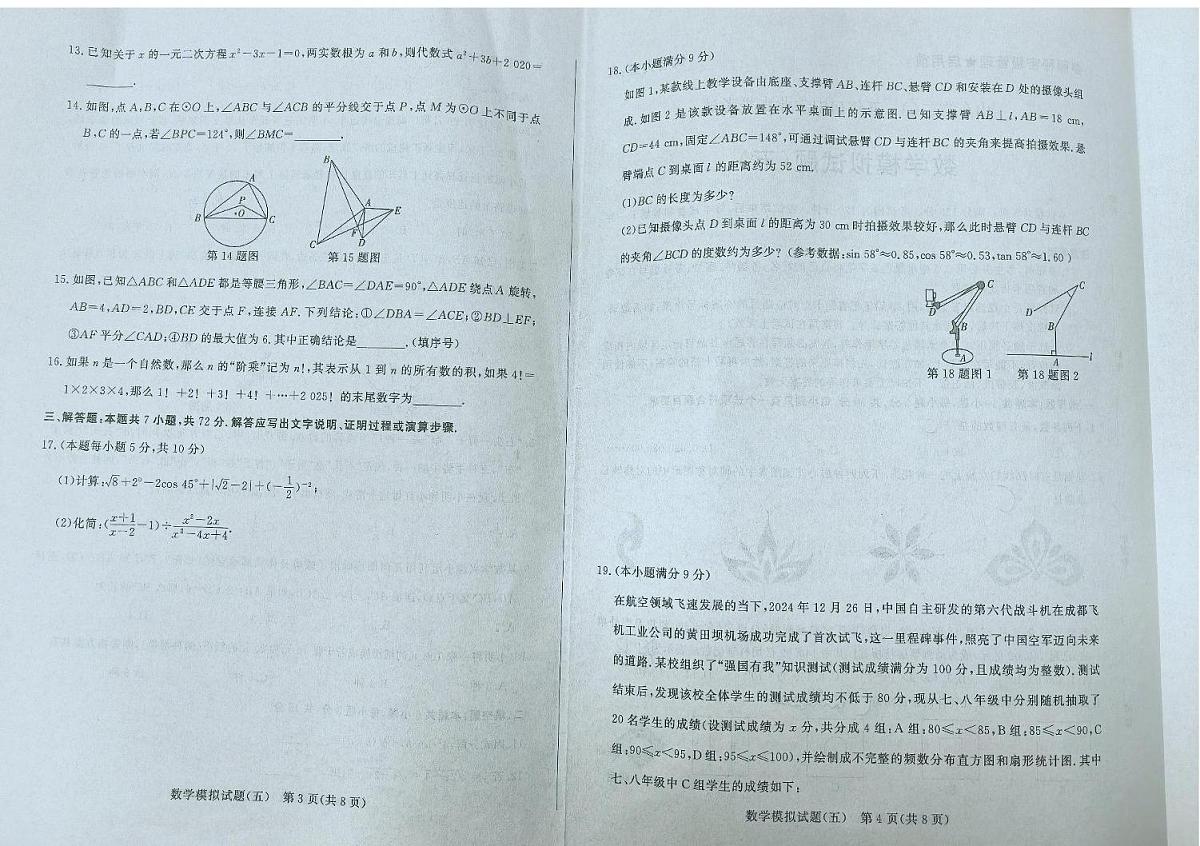 13.已知关于x的一元二次方程x²-3x-1=0,两实数根为a和b,则代数式a²+3b+2 020=
______.
14.如图,点A,B,C在⊙O上,∠ABC与∠ACB的平分线交于点P,点M为⊙O上不同于点
B,C的一点,若∠BPC=124°,则∠BMC=______.
A
P
O
B
C
第14题图
B
A
E
F
C
D
第15题图
15.如图,已知△ABC和△ADE都是等腰三角形,∠BAC=∠DAE=90°,△ADE绕点A旋转,
AB=4,AD=2,BD,CE交于点F,连接AF.下列结论:①∠DBA=∠ACE;②BD⊥EF;
③AF平分∠CAD;④BD的最大值为6.其中正确结论是______.(填序号)
16.如果n是一个自然数,那么n的“阶乘”记为n!,其表示从1到n的所有数的积,如果4!=
1×2×3×4,那么1!+2!+3!+4!+…+2 025!的末尾数字为______.
三、解答题:本题共7小题,共72分.解答应写出文字说明、证明过程或演算步骤.
17.(本题每小题5分,共10分)
(1)计算:√8+2⁰-2cos 45°+|√2-2|+(-1/2)⁻²;
(2)化简:((x+1)/(x-2)-1)÷(x²-2x)/(x²-4x+4).
数学模拟试题(五) 第3页(共8页)
18.(本小题满分9分)
如图1,某款线上教学设备由底座、支撑臂AB、连杆BC、悬臂CD和安装在D处的摄像头组
成.如图2是该款设备放置在水平桌面上的示意图.已知支撑臂AB⊥l,AB=18 cm,
CD=44 cm,固定∠ABC=148°,可通过调试悬臂CD与连杆BC的夹角来提高拍摄效果.悬
臂端点C到桌面l的距离约为52 cm.
(1)BC的长度为多少?
(2)已知摄像头点D到桌面l的距离为30 cm时拍摄效果较好,那么此时悬臂CD与连杆BC
的夹角∠BCD的度数约为多少?(参考数据:sin 58°≈0.85,cos 58°≈0.53,tan 58°≈1.60)
C
D
B
A
第18题图1
C
D
B
A
l
第18题图2
19.(本小题满分9分)
在航空领域飞速发展的当下,2024年12月26日,中国自主研发的第六代战斗机在成都飞
机工业公司的黄田坝机场成功完成了首次试飞,这一里程碑事件,照亮了中国空军迈向未来
的道路.某校组织了“强国有我”知识测试(测试成绩满分为100分,且成绩均为整数).测试
结束后,发现该校全体学生的测试成绩均不低于80分,现从七、八年级中分别随机抽取了
20名学生的成绩(设测试成绩为x分,共分成4组:A组:80≤x<85,B组:85≤x<90,C
组:90≤x<95,D组:95≤x≤100),并绘制成不完整的频数分布直方图和扇形统计图.其中
七、八年级中C组学生的成绩如下:
数学模拟试题(五) 第4页(共8页)